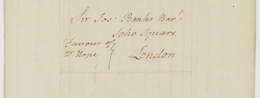 Sir Jos: Banks Bart.
Soho Square
Favour of
Dr Hope
London